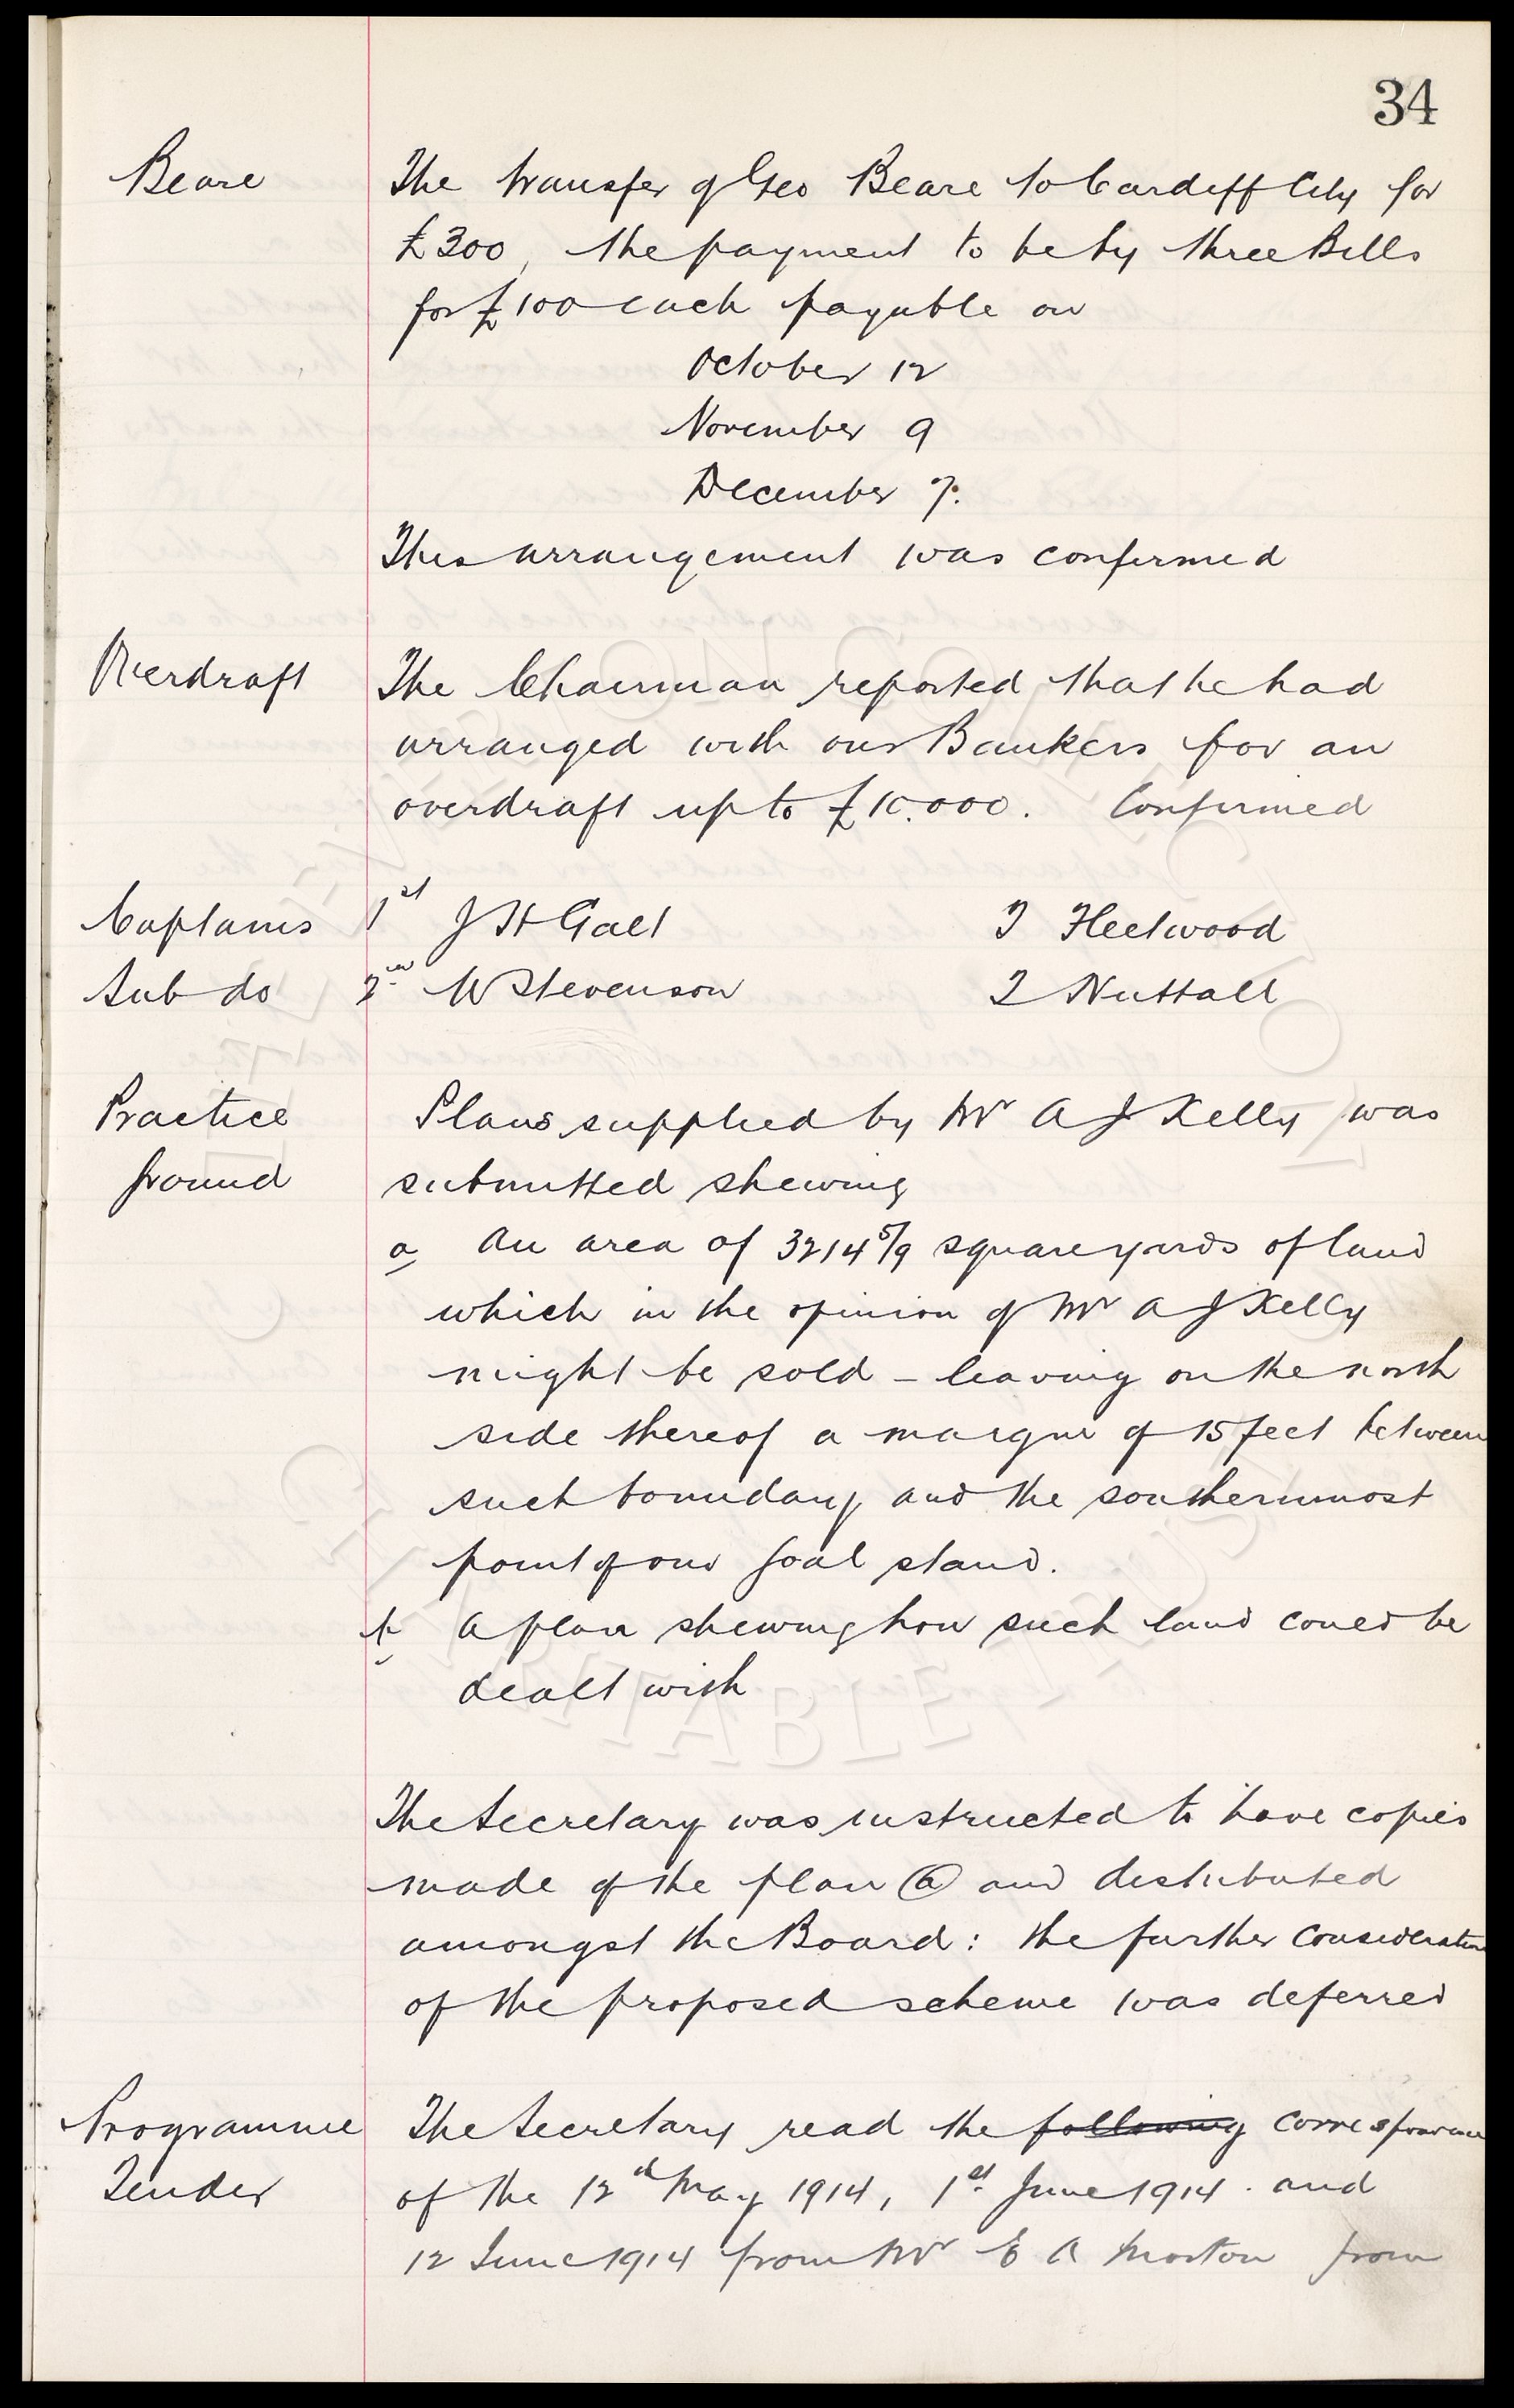 34
Beare The transfer of Geo Beare to Cardiff City for
£300, the payment to be by three Bills
for £100 each payable on
October 12
November 9
December 7.
This arrangement was confirmed
Overdraft The Chairman reported that he had
arranged with our Bankers for an
overdraft up to £10.000. Confirmed
Captains 1st J H Galt T Fleetwood
Sub do 2nd W Stevenson T Nuttall
Practice Plans supplied by Mr A J Kelly was
ground submitted shewing
a An area of 3214 5/9 square yards of land
which in the opinion of Mr A J Kelly
might be sold – leaving on the north
side thereof a margin of 15 feet between
such boundary and the southernmost
point of our Goal stand.
b A plan shewing how such land could be
dealt with
The Secretary was instructed to have copies
made of the plan (a) and distributed
amongst the Board: the further consideration
of the proposed scheme was deferred
Programme The Secretary read the following correspondence
Tender of the 12th May 1914, 1st June 1914. and
12 June 1914 from Mr E A Morton from